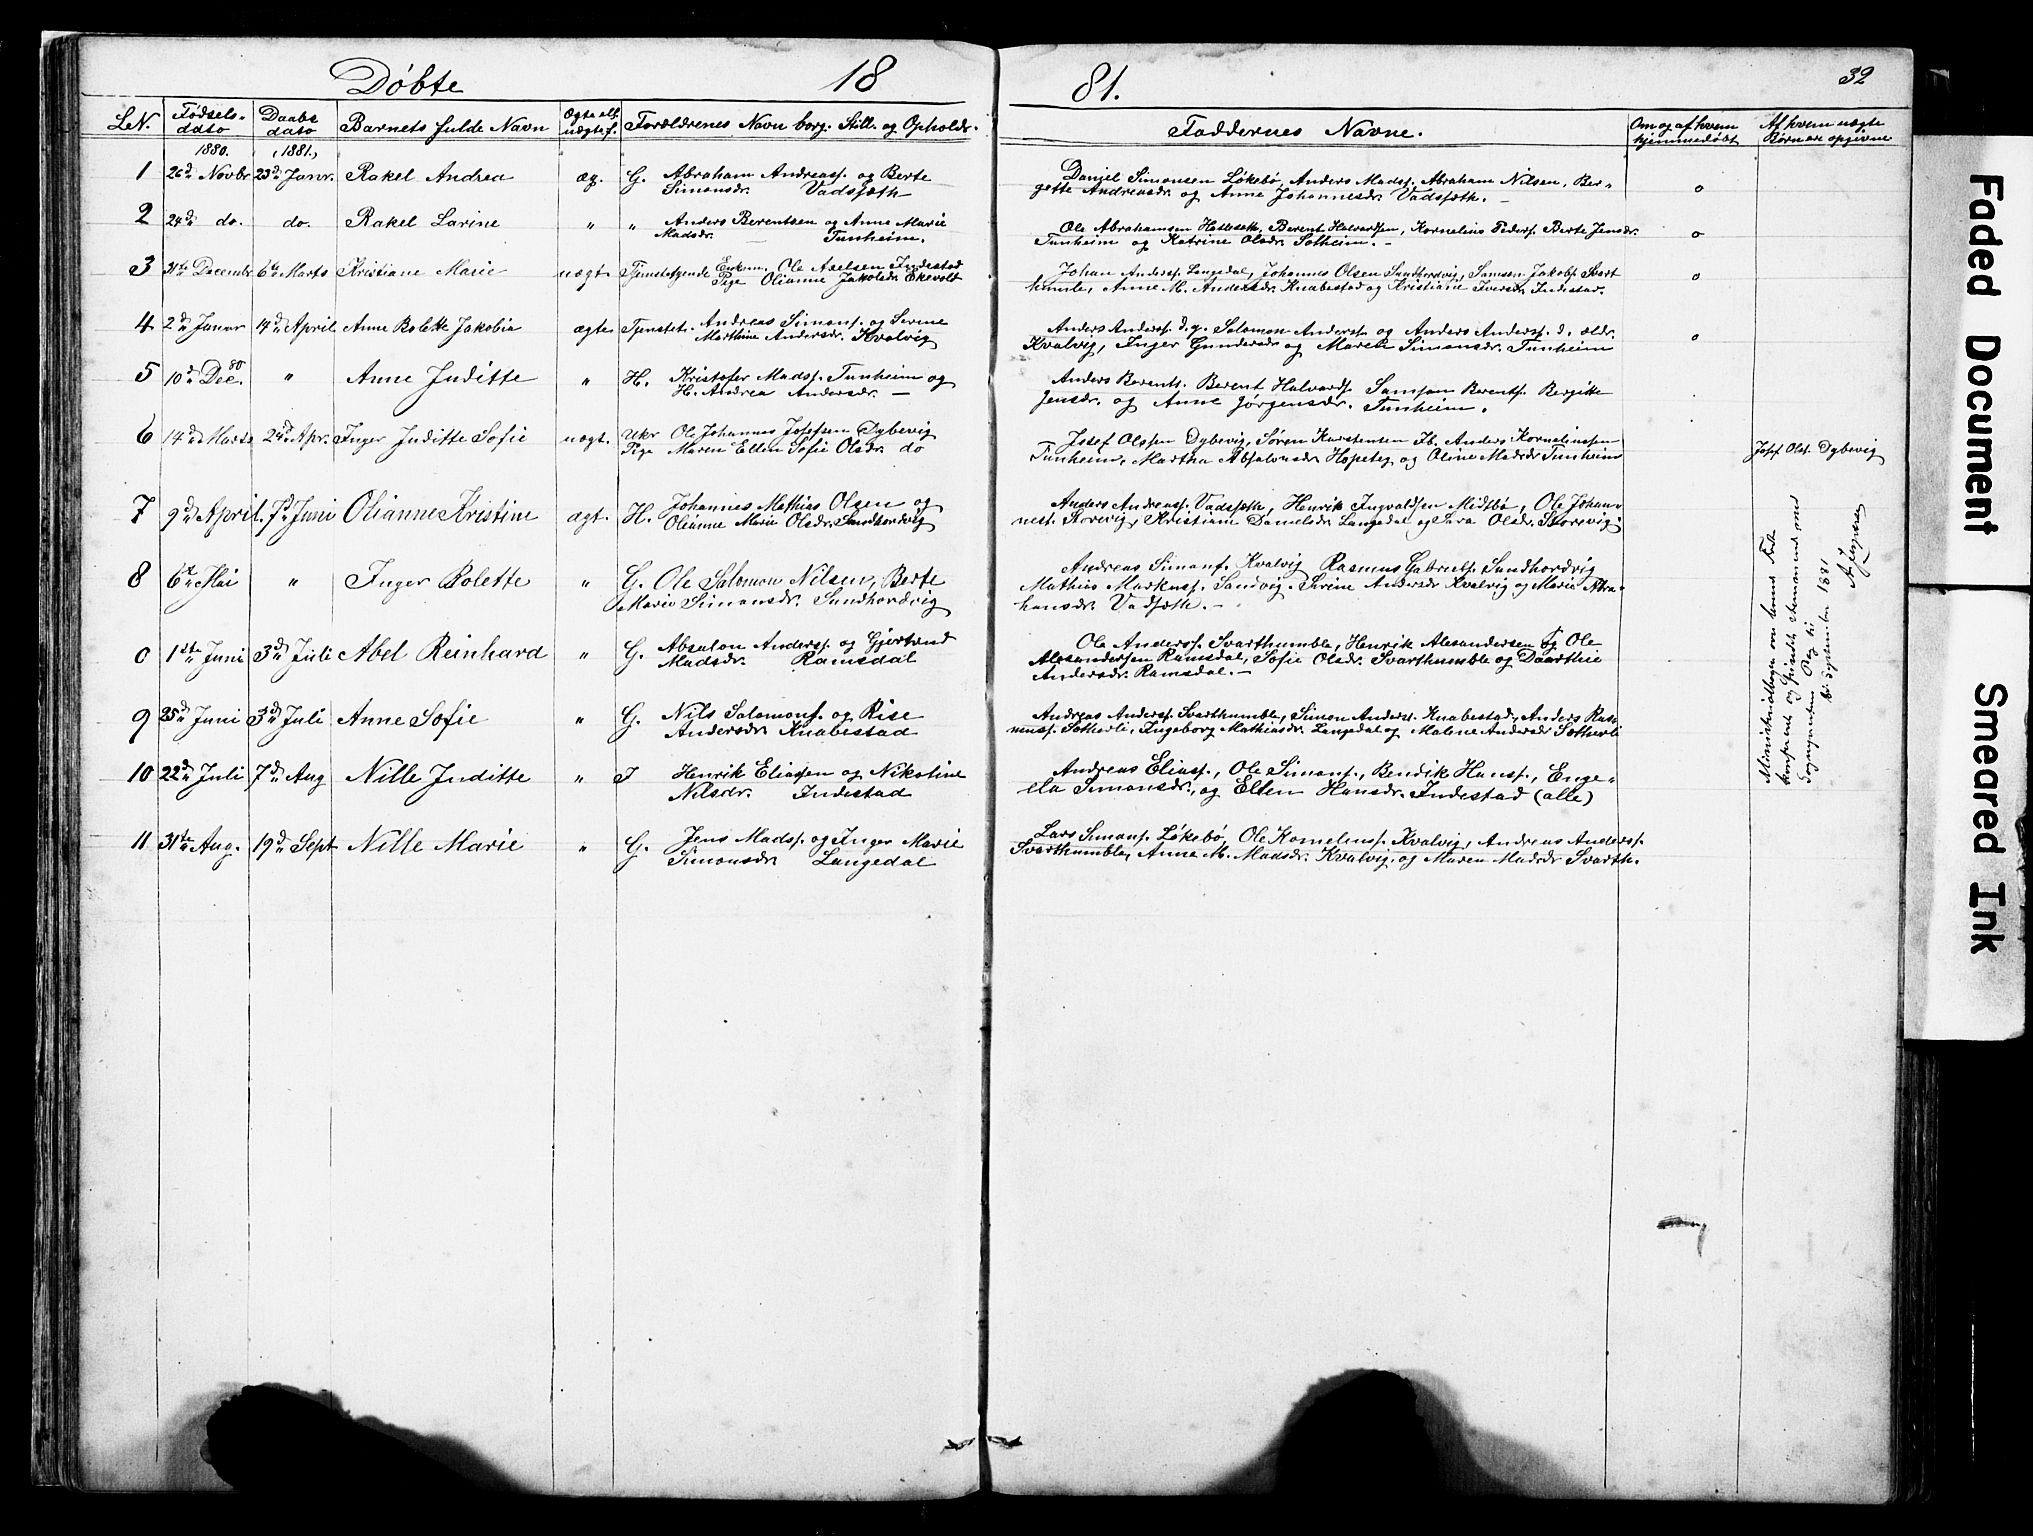 Døbte 18
81. 32
LN. Fødsels-dato Daabs dato Barnets fulde Navn Ægte ell. uægtef. Forældrenes Navn borg. Still. og Opholdr.
Faddernes Navne. Om og af hvem hjemmedøbt Af hvem uægte Børn ere opgivne
1880. (1881.)
1 26de Novbr 23de Janr. Rakel Andrea æg. G. Abraham Andreasf. og Berte
Simonsdr. Vadsjæth
Daniel Simonsen Løkebø, Anders Madsf. Abraham Nilsen, Ber-
gette Andreasdr. og Anne Johannesdr. Vadsjæth. o
2 24de do. do. Rakel Larine " " Anders Berentsen og Anne Marie
Madsdr. — Tunheim.
Ole Abrahamsen Berent Halvardsen, Kornelius Pedersf. Berte Jensdr.
Tunheim og Katrine Olsdr. Solheim. - o
3 31te Decembr 6te Marts Kristiane Marie uægt. Tjenstsøgende Enkem. Ole Axelsen Indestad
Pige Olianne Jakobsdr. Ekevolt
Johan Andersf. Langedal, Johannes Olsen Sandhordvig, Samson Jakobsf. Svart
humle, Anne M. Andersdr. Knabestad og Kristiane Iversdr. Indestad. o
4 2de Januar 14de April Anne Bolette Jakobia ægte Tjenstet. Andreas Simonsf. og Serine
Marthine Andersdr. Kvalvig
Anders Andersf. d.y. Salomon Andersf. og Anders Andersf. d. ældr.
Kvalvig, Inger Gundersdr og Marete Simonsdr. Tunheim o
5 10de Dec. 80 " Anne Juditte " H. Kristofer Madsf. Tunheim og
H. Andrea Andersdr. —
Anders Berents. Berent Halvardsf. Samson Berentsf. Bergitte
Jensdr. og Anne Jørgensdr. Tunheim.
6 14de Marts 24de Apr. Inger Juditte Sofie uægt. Ukr Ole Johannes Josefsen Dybevig
Pige Maren Ellen Sofie Olsdr. do
Josef Olssen Dybevig, Søren Karstensen Anders Kornelinssen
Tunheim, Martha Absalonsdr Hopeteg og Oline Madsdr Tunheim Josef Olst. Dybevig
7 9de April. 7de Juni Olianne Kristine ægt. H. Johannes Mathias Olsen og
Olianne Marie Olsdr. Sandhordvig
Anders Andreasf. Vadsjæth, Henrik Ingvaldsen Midtbø, Ole Johan-
nesf. Storevig, Kristiane Danielsdr. Langedal og Sara Olsdr. Storevig.
8 6te Mai " Inger Bolette " G. Ole Salomon Nilsen, Berte
Marie Simonsdr. Sundhordvig
Andreas Simonf. Kvalvig Rasmus Gabrielsf. Sundhordvig
Mathias Markusf. Sandvig. Serine Andersdr Kvalvig og Marie Abra-
hamsdr. Vadsjæth. -
0 1ste Juni 3de Juli Abel Reinhard " G. Absalon Andersf. og Gjertrud
Madsdr. Ramsdal
Ole Andersf. Svarthumble, Henrik Alexandersen og Ole
Alexandersen Ramsdal, Sofie Olsdr. Svarthumble og Daarthie
Andersdr. Ramsdal. -
9 25de Juni 3de Juli Anne Sofie " G. Nils Salomonf. og Rise
Andersdr. Knabestad
Andreas Andersf. Svarthumble, Simon Andersf. Knabestad, Anders Ras-
mussf. Sotherli, Ingeborg Mathiasdr. Langedal og Malene Andersdr Sotherli
10 22de Juli 7de Aug Nille Juditte " I Henrik Eliassen og Nikoline
Nilsdr. Indestad
Andreas Eliasf., Ole Simonf., Bendik Hansf., Enge-
ela Simonsdr., og Ellen Hansdr. Indestad (alle)
11 31te Aug. 19de Sept Nille Marie " G. Jens Madsf. og Inger Marie
Simonsdr Langedal
Lars Simonf. Løkebø, Ole Kornelinsf. Kvalvig, Andreas Andersf.
Svarthumble, Anne M. Madsdr. Kvalvig, og Maren Madsdr Svarth.
Ministerialbogen
og
6. September 1881
Faded Document
Smeared Ink